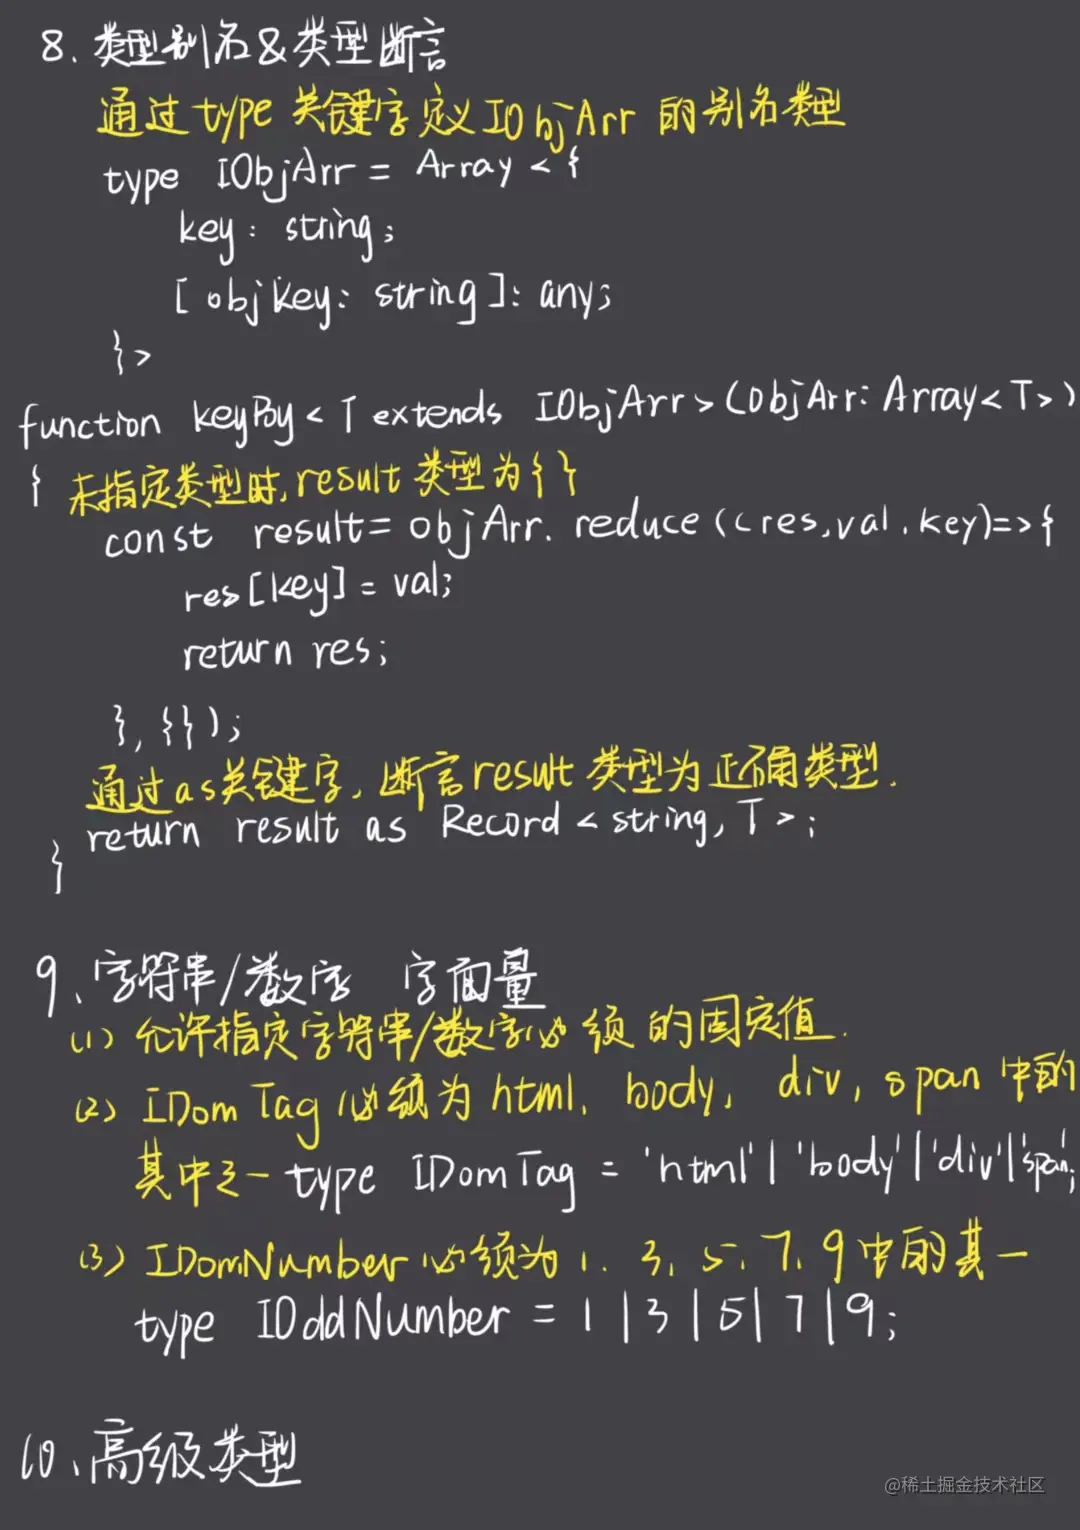 8. 类型别名&类型断言
通过type 关键字定义IObjArr 的别名类型
type IObjArr = Array<{
key: string;
[objKey: string]: any;
}>
function keyBy<T extends IObjArr>(objArr: Array<T>)
{ 未指定类型时,result 类型为{}
const result = objArr. reduce((res,val,key)=>{
res[key] = val;
return res;
}, {});
通过as关键字, 断言result 类型为正确类型.
return result as Record<string, T>;
}
9、字符串/数字 字面量
(1) 允许指定字符串/数字必须的固定值.
(2) IDomTag 必须为 html、body, div, span 中的
其中之一 type IDomTag = 'html'|'body'|'div'|'span';
(3) IDomNumber 必须为1. 3, 5, 7, 9 中的其一
type IOddNumber = 1|3|5|7|9;
10、高级类型
@稀土掘金技术社区